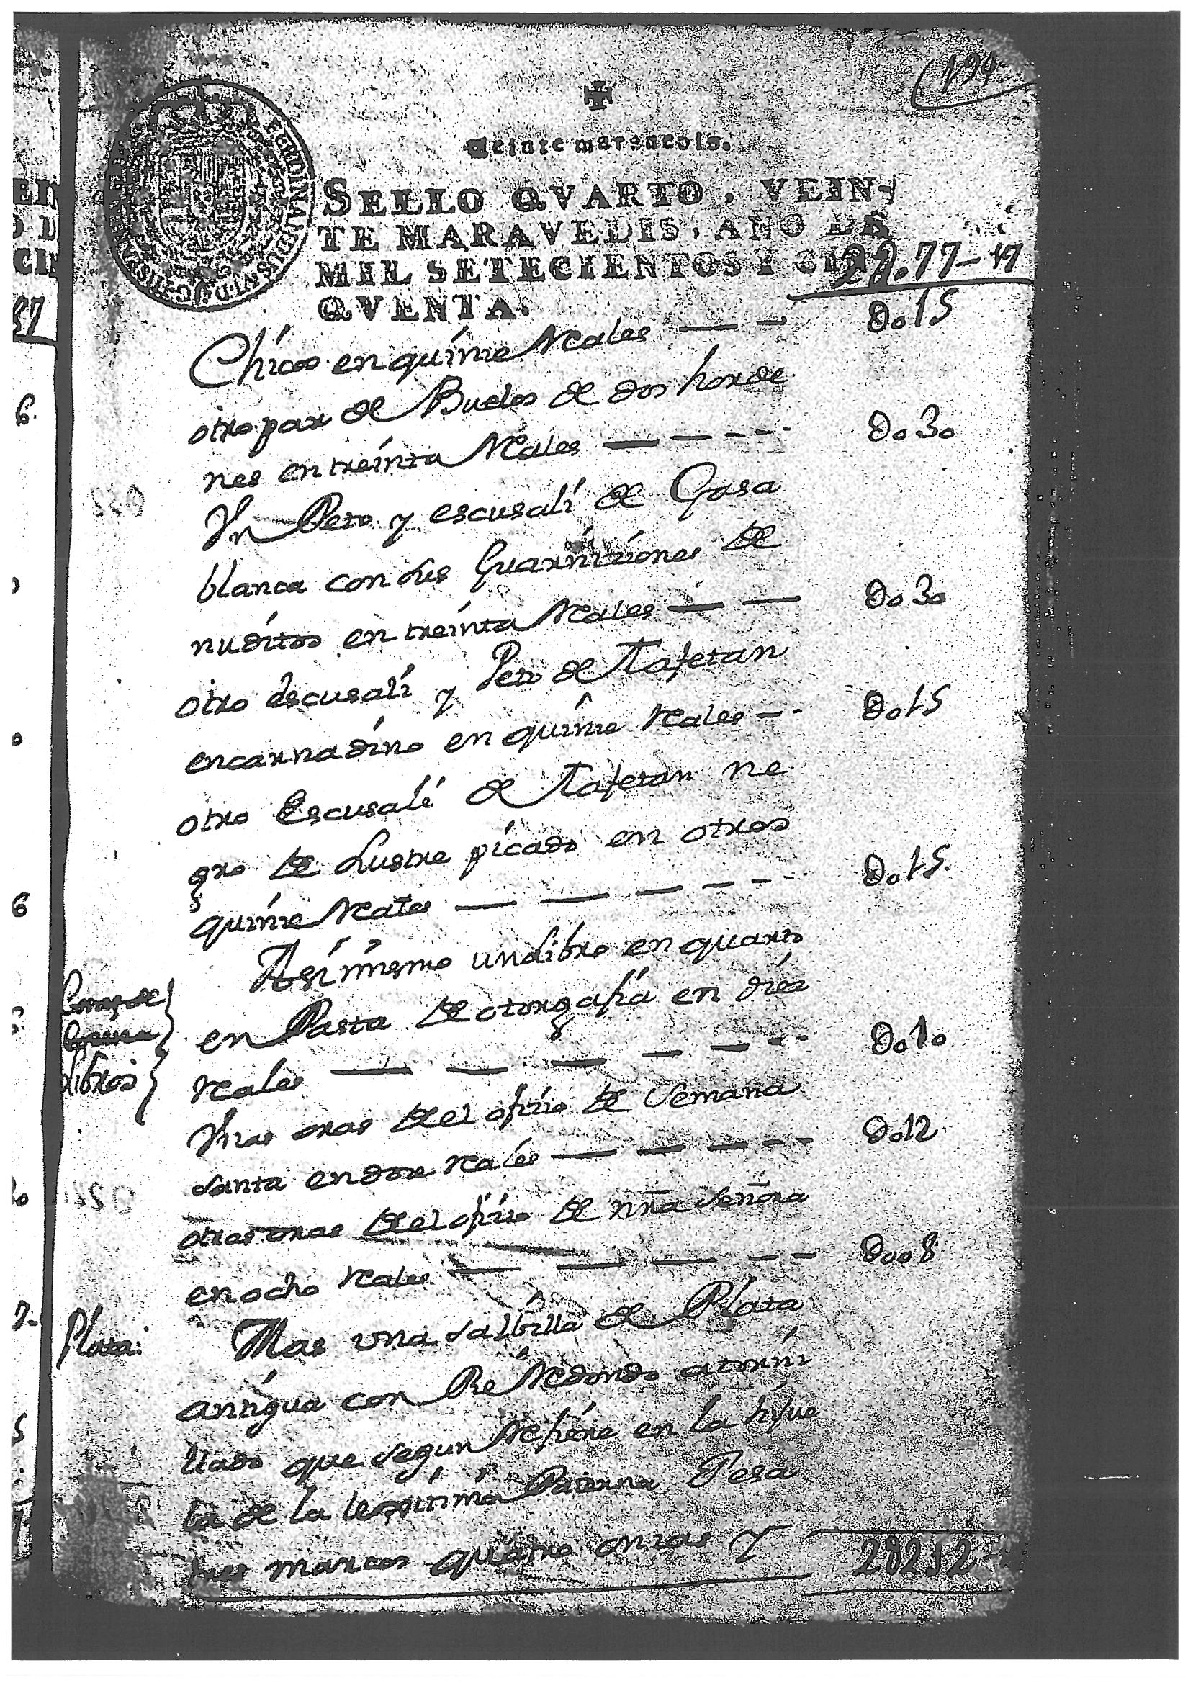 (199
✠
Veinte maravedis.
SELLO QVARTO, VEIN-
TE MARAVEDIS, AÑO DE
MIL SETECIENTOS Y CIN-
QVENTA.
77-17
Chicos en quinze Reales — Do15
otro par de Buelos de dos horde
nes en treinta Reales — Do30
Vn Peto y escusali de Gasa
blanca con sus Guarniziones de
nuditos en treinta Reales — Do30
otro escusali y Peto de Tafetan
encarnadino en quinze Reales — Do15
otro Escusali de Tafetan ne
gro de Lustre picado en otros
quinze Reales — Do15
Asimismo un libro en quarto
en Pasta de otorgafia en diez
Reales — Do1o
Vnas oras de el ofizio de Semana
santa en doze Reales — Do12
otras oras de el ofizio de nrã Señora
en ocho Reales — Doo8
libros
Plata:
Mas una salbilla de Plata
antigua con Pie Redondo atorni
llado que segun Refiere en la hijue
la de la legitima Paterna Pesa
tres marcos quatro onzas y
28212